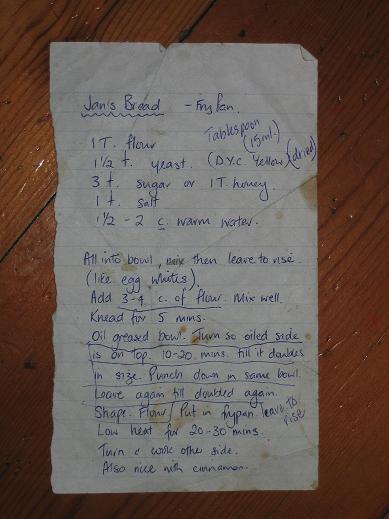 Jan's Bread - Fry Pan.
Tablespoon
(15ml.)
1 T. flour
1½ t. yeast. (D.Y.C Yellow) (dried)
3 t. sugar or 1T. honey.
1 t. salt
1½ - 2 c. warm water.
All into bowl, mix then leave to rise.
(like egg whites).
Add 3-4 c. of flour. Mix well.
Knead for 5 mins.
Oil greased bowl. Turn so oiled side
is on top. 10-20. mins. till it doubles
in size. Punch down in same bowl.
Leave again till doubled again.
Shape. Flour/ Put in frypan leave to rise
Low heat for 20-30 mins.
Turn & cook other side.
Also nice with cinnamon.